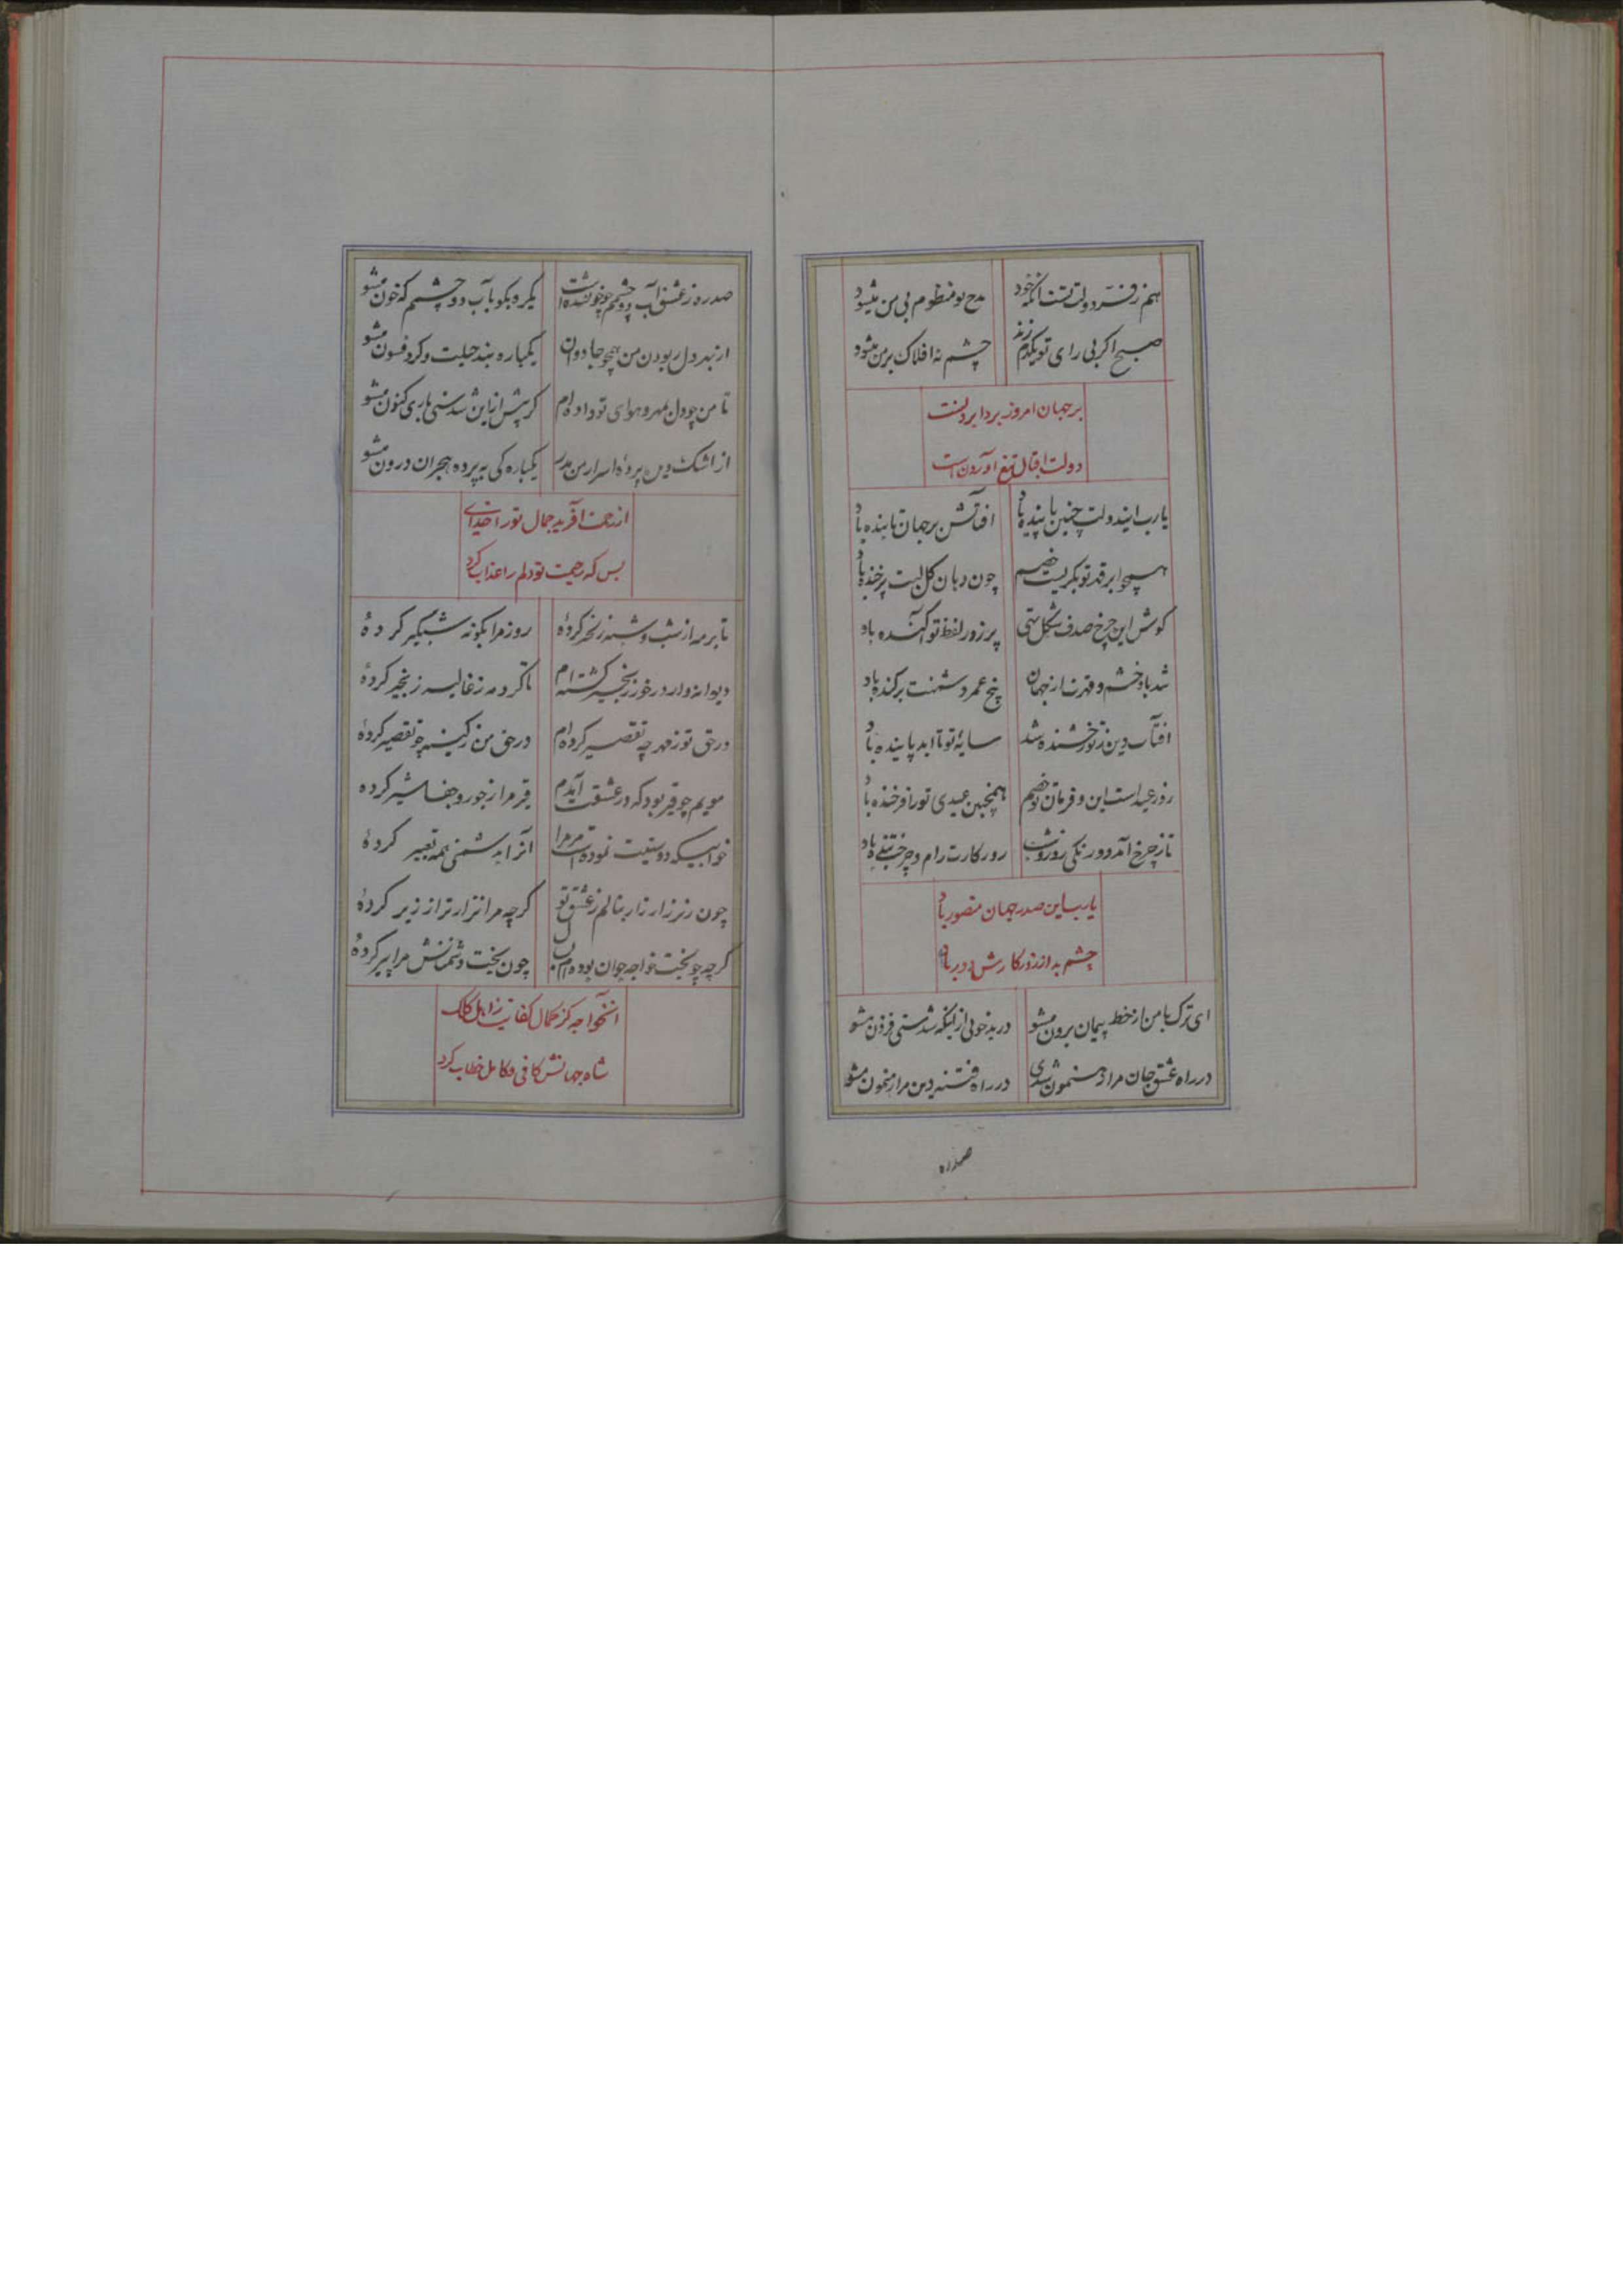 هم ز فر دولت تست آنکه خود مدح تو منظوم بی من میشود
صبح اکر بی رای تو یکدم زند چشم نه افلاک بر من میشود
بر جهان امروز بردابرد تست
دولت اقبال تیغ آورد تست
یارب ایندولت چنین پاینده باد آفتابش بر جهان تابنده باد
همچو ابر قدر تو بکریست خصم چون دهان کل لبت پرخنده باد
کوش این چرخ صدف شکل تهی پر ز در لفظ تو آکنده باد
شد باد خشم و قهرت از جهان بیخ عمر دشمنت برکنده باد
آفتاب دین ز تو رخشنده شد سایهٔ تو تا ابد پاینده باد
روز عید است این و قربان تو خصم همچنین عیدی تو را فرخنده باد
تا ز چرخ آمد دورنکی روز و شب روزکارت رام و چرخت بنده باد
یارب این صدر جهان منصور باد
چشم بد از روزکارش دور باد
ای ترک با من از خط پیمان برون مشو در بدخوئی از آنکه شدستی فزون مشو
در راه عشق جان مرا رهنمون شدی در راه فتنه دین مرا رهنمون مشو
صدره
صدره ز عشق آب دو چشمم چو خون شده است یکره بکو بآب دو چشمم که خون مشو
از بهر دل ربودن من همچو جادوان یکباره بند حیلت و کرد فسون مشو
تا من چو دل بمهر و هوای تو داده‌ام کر پیش از این شدستی باری کنون مشو
از اشک دیده پردهٔ اسرار من مدر یکباره کی به پرده هجران درون مشو
از رحمت آفرید جمال تو را خدای
بس که رحمت تو دلم را عذاب کرد
تا بر مه از بنفشه زنجیر کردهٔ روز مرا بکونه شبکیر کردهٔ
دیوانه‌وار در خور زنجیر کشته‌ام تا کرد مه ز غالیه زنجیر کردهٔ
در حق تو ز مهر چه تقصیر کرده‌ام در حق من ز کینه چو تقصیر کردهٔ
مویم چو قیر بود که در عشقت آمدم قیر مرا ز جور و جفا شیر کرده
خوابیکه دوستیت نموده است مر مرا آنرا به دشمنی همه تعبیر کردهٔ
چون زیر زار زار بنالم ز عشق تو کرچه مرا نزارتر از زیر کردهٔ
کرچه چو بخت خواجه جوان بوده‌ام چون بخت دشمنانش مرا پیر کردهٔ
آنخواجه کز کمال کفایت ز اهل کلک
شاه جهانش کافی و کامل خطاب کرد